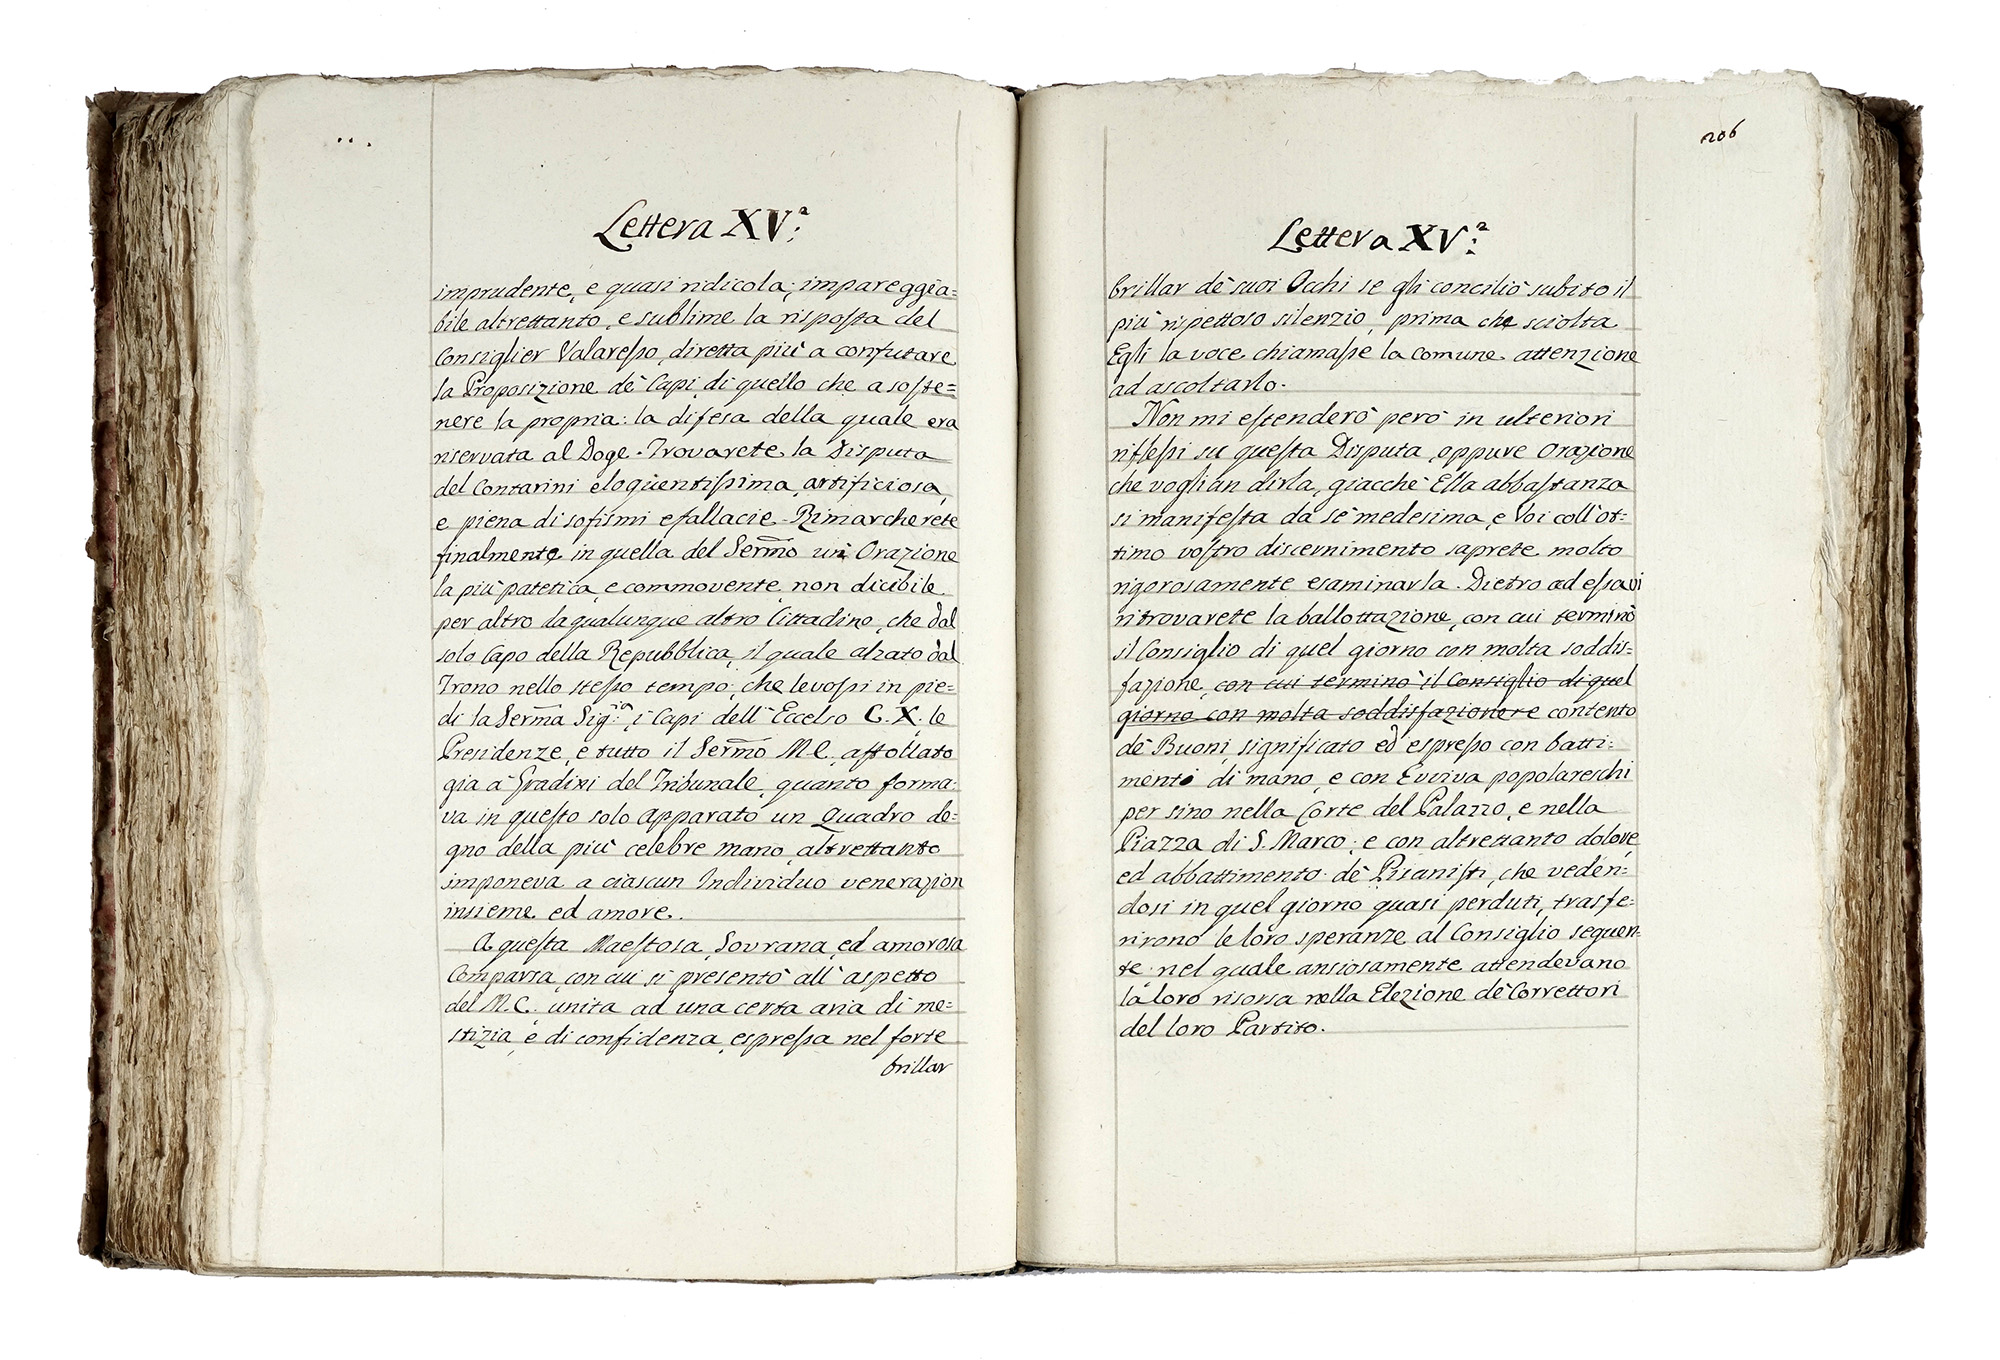 Lettera XV.ª
imprudente, e quasi ridicola; impareggia=
bile altrettanto, e sublime la risposta del
Consiglier Valaresso, diretta più a confutare
la Proposizione de' Capi, di quello che a soste=
nere la propria: la difesa della quale era
riservata al Doge. Trovarete la Disputa
del Contarini eloquentissima, artificiosa,
e piena di sofismi e fallacie. Rimarcherete
finalmente in quella del Sermo un' Orazione
la più patetica, e commovente, non dicibile
per altro da qualunque altro Cittadino, che dal
solo Capo della Repubblica, il quale alzato dal
Trono nello stesso tempo, che levossi in pie=
di la Serma Sig.ria, i Capi dell' Eccelso C. X. le
Presidenze, e tutto il Sermo M. C. affollato
gia a' Gradini del Tribunale, quanto forma=
va in questo solo apparato un Quadro de=
gno della più celebre mano, altrettanto
imponeva a ciascun Individuo venerazion
insieme ed amore.
A questa Maestosa, Sovrana, ed amorosa
Comparsa, con cui si presentò all' aspetto
del M. C. unita ad una certa aria di me=
stizia, e di confidenza, espressa nel forte
brillar
206
Lettera XV.ª
brillar de' suoi Occhi se gli conciliò subito il
più rispettoso silenzio, prima che sciolta
Egli la voce chiamasse la comune attenzione
ad ascoltarlo.
Non mi estenderò però in ulteriori
riflessi su questa Disputa, oppure Orazione
che vogliàn dirla, giacchè Ella abbastanza
si manifesta da sè medesima, e Voi coll' ot=
timo vostro discernimento saprete molto
rigorosamente esaminarla. Dietro ad essa vi
ritrovarete la ballottazione, con cui terminò
il Consiglio di quel giorno con molta soddis=
fazione, con cui terminò il Consiglio di quel
giorno con molta soddisfazione e contento
de' Buoni, significato ed espresso con batti=
menti di mano, e con Evviva popolareschi
per sino nella Corte del Palazzo, e nella
Piazza di S. Marco; e con altrettanto dolore,
ed abbattimento de' Pisanisti, che veden=
dosi in quel giorno quasi perduti, trasfe=
rirono le loro speranze al Consiglio seguen=
te: nel quale ansiosamente attendevano
la loro risorsa nella Elezione de' Correttori
del loro Partito.